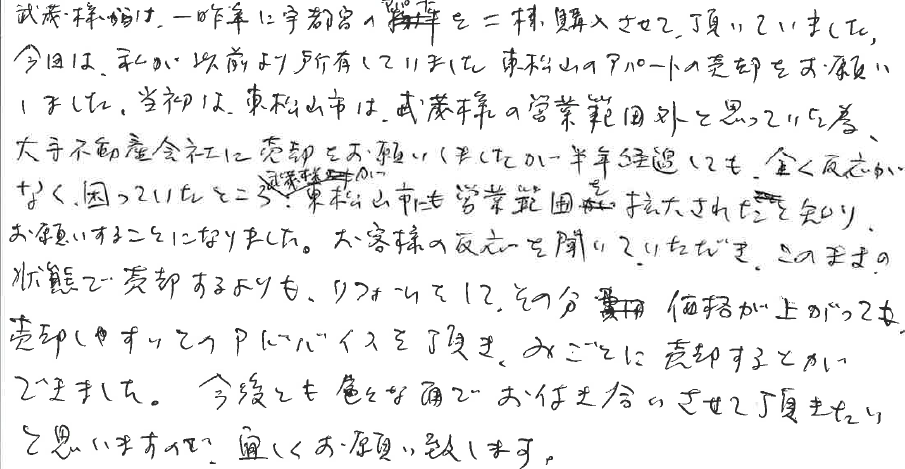 武蔵様からは、一昨年に宇都宮の物件を二棟購入させて頂いていました。
今回は、私が以前より所有していました東松山のアパートの売却をお願い
しました。当初は、東松山市は、武蔵様の営業範囲外と思っていた為、
大手不動産会社に売却をお願いしましたが半年経過しても、全く反応が
なく、困っていたところ、武蔵様が東松山市にも営業範囲を拡大されたことを知り、
お願いすることになりました。お客様の反応を聞いていただき、このままの
状態で売却するよりも、リフォームをして、その分価格が上がっても、
売却しやすいとのアドバイスを頂き、みごとに売却することが
できました。今後とも色々な面でお付き合いさせて頂きたい
と思いますので、宜しくお願い致します。